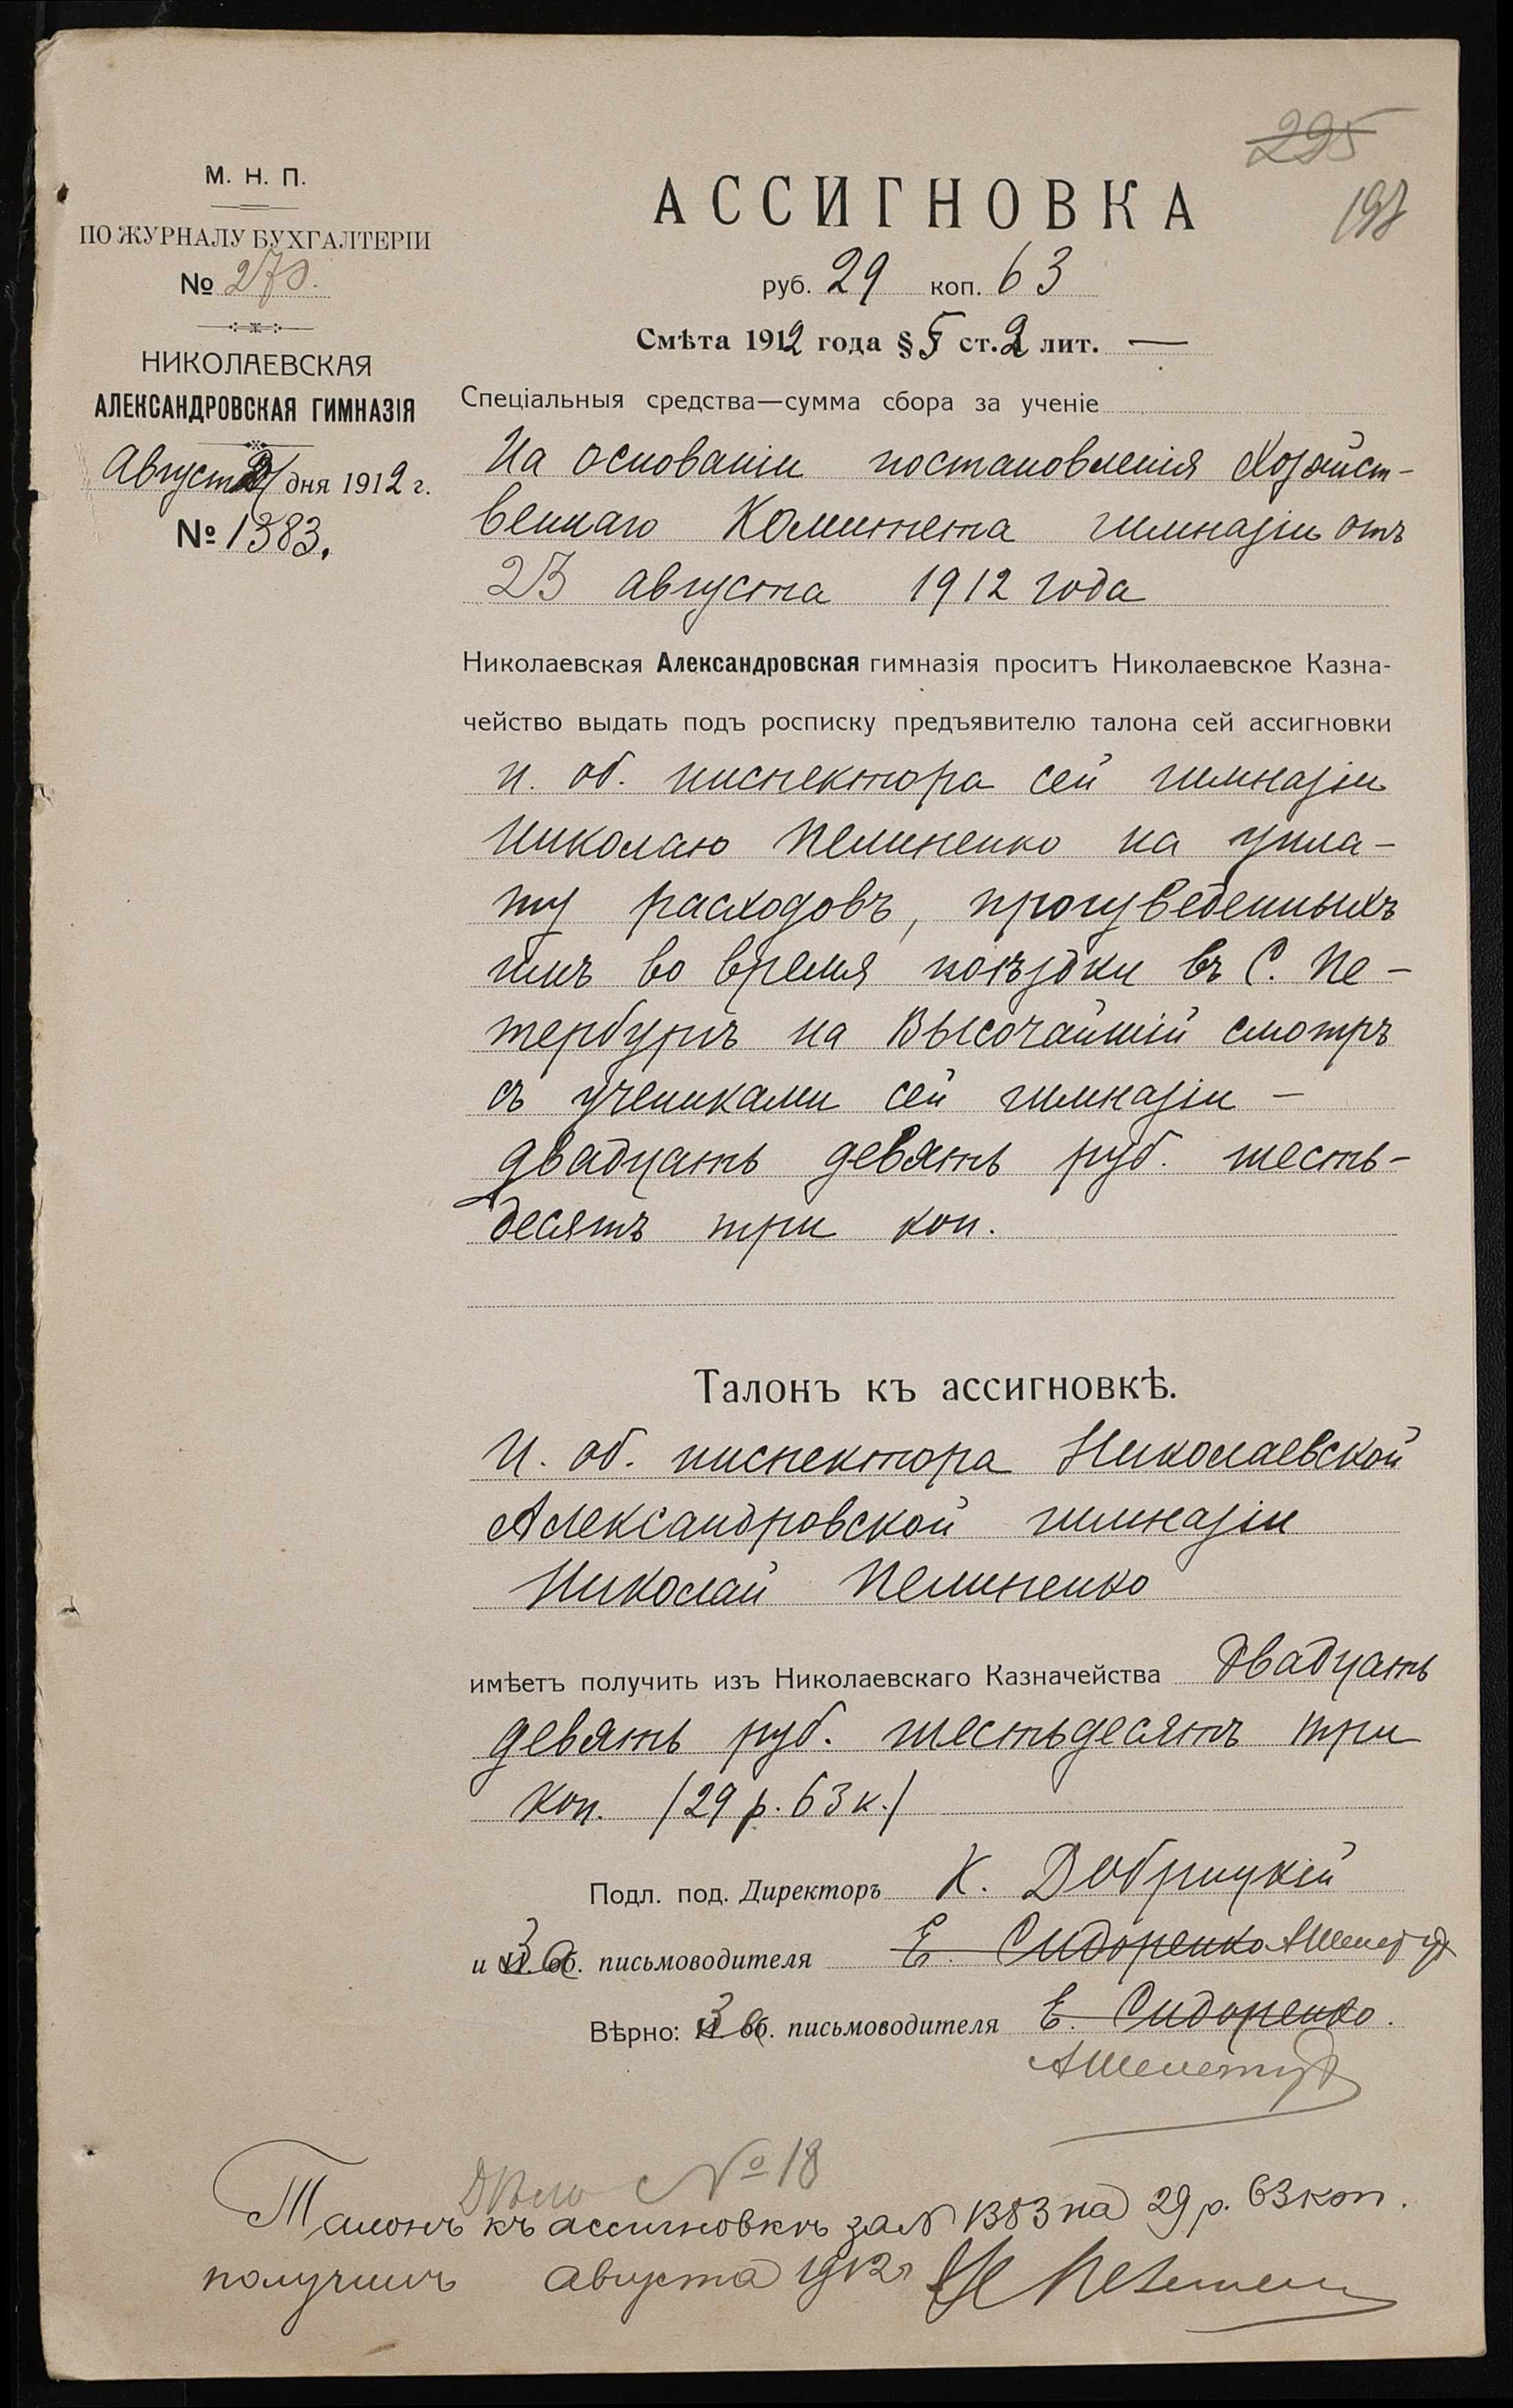 295
198
М. Н. П.
ПО ЖУРНАЛУ БУХГАЛТЕРІИ
№ 270.
НИКОЛАЕВСКАЯ
АЛЕКСАНДРОВСКАЯ ГИМНАЗІЯ
Августа дня 1912 г.
№ 1383.
АССИГНОВКА
руб. 29 коп. 63
Смѣта 1912 года § 5 ст. 2 лит. —
Спеціальныя средства—сумма сбора за ученіе
На основаніи постановленія Хозяйст-
веннаго Комитета гимназіи отъ
23 августа 1912 года
Николаевская Александровская гимназія проситъ Николаевское Казна-
чейство выдать подъ росписку предъявителю талона сей ассигновки
и. об. инспектора сей гимназіи
Николаю Пелипенко на упла-
ту расходовъ, произведенныхъ
имъ во время поѣздки въ С. Пе-
тербургъ на Высочайшій смотръ
съ учениками сей гимназіи —
двадцать девять руб. шесть-
десятъ три коп.
Талонъ къ ассигновкѣ.
И. об. инспектора Николаевской
Александровской гимназіи
Николай Пелипенко
имѣетъ получить изъ Николаевскаго Казначейства двадцать
девять руб. шестьдесятъ три
коп. /29 р. 63 к./
Подл. под. Директоръ К. Добрицкій
и И. об. письмоводителя Е. Сидоренко
Вѣрно: И. об. письмоводителя Е. Сидоренко.
Дѣло № 18
Талонъ къ ассигновкѣ за № 1383 на 29 р. 63 коп.
получилъ августа 1912 г